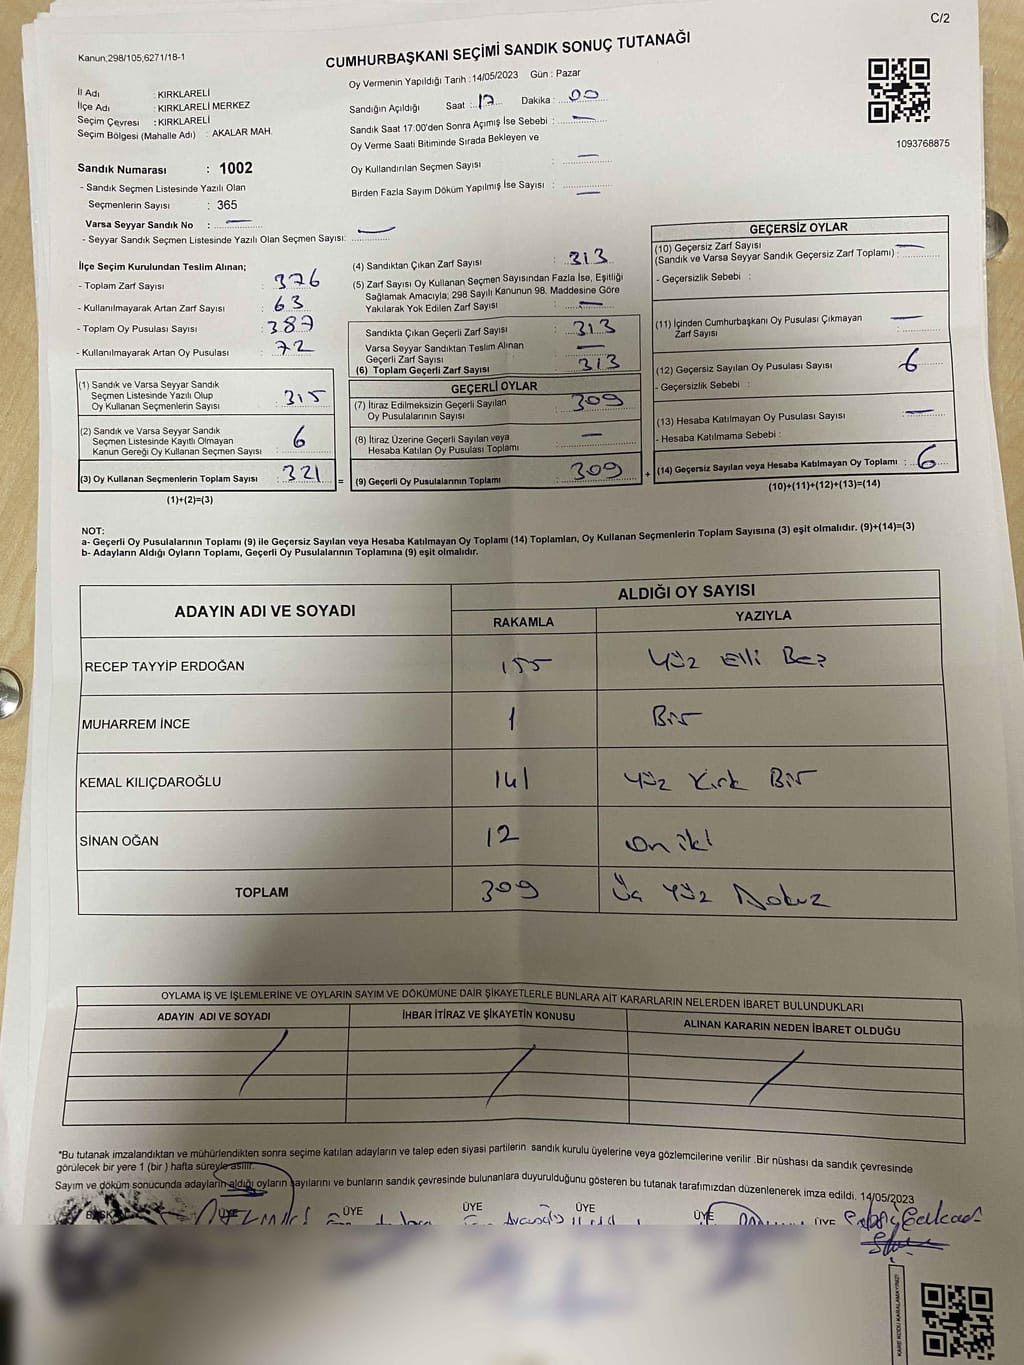 C/2
Kanun;298/105,6271/18-1
CUMHURBAŞKANI SEÇİMİ SANDIK SONUÇ TUTANAĞI
Oy Vermenin Yapıldığı Tarih :14/05/2023 Gün : Pazar
İl Adı : KIRKLARELİ
İlçe Adı : KIRKLARELİ MERKEZ
Seçim Çevresi : KIRKLARELİ
Seçim Bölgesi (Mahalle Adı) : AKALAR MAH.
Sandığın Açıldığı Saat : 17 Dakika : 00
Sandık Saat 17:00'den Sonra Açımış İse Sebebi : —
Oy Verme Saati Bitiminde Sırada Bekleyen ve
Oy Kullandırılan Seçmen Sayısı : —
Birden Fazla Sayım Döküm Yapılmış İse Sayısı : —
1093768875
Sandık Numarası : 1002
- Sandık Seçmen Listesinde Yazılı Olan
Seçmenlerin Sayısı : 365
Varsa Seyyar Sandık No : —
- Seyyar Sandık Seçmen Listesinde Yazılı Olan Seçmen Sayısı: —
İlçe Seçim Kurulundan Teslim Alınan;
- Toplam Zarf Sayısı : 376
- Kullanılmayarak Artan Zarf Sayısı : 63
- Toplam Oy Pusulası Sayısı : 387
- Kullanılmayarak Artan Oy Pusulası : 72
(1) Sandık ve Varsa Seyyar Sandık
Seçmen Listesinde Yazılı Olup
Oy Kullanan Seçmenlerin Sayısı : 315
(2) Sandık ve Varsa Seyyar Sandık
Seçmen Listesinde Kayıtlı Olmayan
Kanun Gereği Oy Kullanan Seçmen Sayısı : 6
(3) Oy Kullanan Seçmenlerin Toplam Sayısı : 321 =
(1)+(2)=(3)
(4) Sandıktan Çıkan Zarf Sayısı : 313
(5) Zarf Sayısı Oy Kullanan Seçmen Sayısından Fazla İse, Eşitliği
Sağlamak Amacıyla; 298 Sayılı Kanunun 98. Maddesine Göre
Yakılarak Yok Edilen Zarf Sayısı : —
Sandıkta Çıkan Geçerli Zarf Sayısı : 313
Varsa Seyyar Sandıktan Teslim Alınan
Geçerli Zarf Sayısı : —
(6) Toplam Geçerli Zarf Sayısı : 313
GEÇERLİ OYLAR
(7) İtiraz Edilmeksizin Geçerli Sayılan
Oy Pusulalarının Sayısı : 309
(8) İtiraz Üzerine Geçerli Sayılan veya
Hesaba Katılan Oy Pusulası Toplamı : —
(9) Geçerli Oy Pusulalarının Toplamı : 309 +
GEÇERSİZ OYLAR
(10) Geçersiz Zarf Sayısı
(Sandık ve Varsa Seyyar Sandık Geçersiz Zarf Toplamı) : —
- Geçersizlik Sebebi :
(11) İçinden Cumhurbaşkanı Oy Pusulası Çıkmayan
Zarf Sayısı : —
(12) Geçersiz Sayılan Oy Pusulası Sayısı : 6
- Geçersizlik Sebebi :
(13) Hesaba Katılmayan Oy Pusulası Sayısı : —
- Hesaba Katılmama Sebebi :
(14) Geçersiz Sayılan veya Hesaba Katılmayan Oy Toplamı : 6
(10)+(11)+(12)+(13)=(14)
NOT:
a- Geçerli Oy Pusulalarının Toplamı (9) ile Geçersiz Sayılan veya Hesaba Katılmayan Oy Toplamı (14) Toplamları, Oy Kullanan Seçmenlerin Toplam Sayısına (3) eşit olmalıdır. (9)+(14)=(3)
b- Adayların Aldığı Oyların Toplamı, Geçerli Oy Pusulalarının Toplamına (9) eşit olmalıdır.
ADAYIN ADI VE SOYADI
ALDIĞI OY SAYISI
RAKAMLA YAZIYLA
RECEP TAYYİP ERDOĞAN 155 Yüz Elli Beş
MUHARREM İNCE 1 Bir
KEMAL KILIÇDAROĞLU 141 Yüz Kırk Bir
SİNAN OĞAN 12 on iki
TOPLAM 309 Üç Yüz Dokuz
OYLAMA İŞ VE İŞLEMLERİNE VE OYLARIN SAYIM VE DÖKÜMÜNE DAİR ŞİKAYETLERLE BUNLARA AİT KARARLARIN NELERDEN İBARET BULUNDUKLARI
ADAYIN ADI VE SOYADI İHBAR İTİRAZ VE ŞİKAYETİN KONUSU ALINAN KARARIN NEDEN İBARET OLDUĞU
*Bu tutanak imzalandıktan ve mühürlendikten sonra seçime katılan adayların ve talep eden siyasi partilerin sandık kurulu üyelerine veya gözlemcilerine verilir .Bir nüshası da sandık çevresinde
görülecek bir yere 1 (bir ) hafta süreyle asılır.
Sayım ve döküm sonucunda adayların aldığı oyların sayılarını ve bunların sandık çevresinde bulunanlara duyurulduğunu gösteren bu tutanak tarafımızdan düzenlenerek imza edildi. 14/05/2023
ÜYE ÜYE ÜYE ÜYE ÜYE
KARE KODU KARALAMAYINIZ!